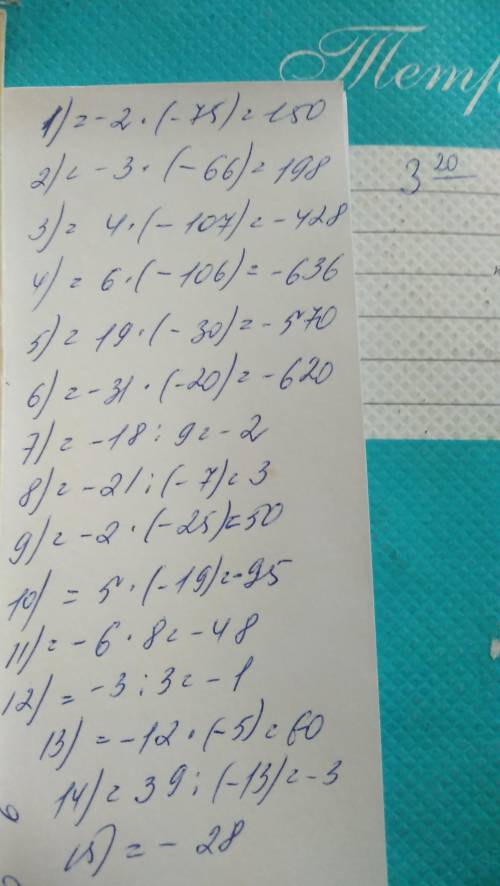 Тетр
3 20
1) = -2 · (-75) = 150
2) = -3 · (-66) = 198
3) = 4 · (-107) = -428
4) = 6 · (-106) = -636
5) = 19 · (-30) = -570
6) = -31 · (-20) = -620
7) = -18 : 9 = -2
8) = -21 : (-7) = 3
9) = -2 · (-25) = 50
10) = 5 · (-19) = -95
11) = -6 · 8 = -48
12) = -3 : 3 = -1
13) = -12 · (-5) = 60
14) = 39 : (-13) = -3
15) = -28